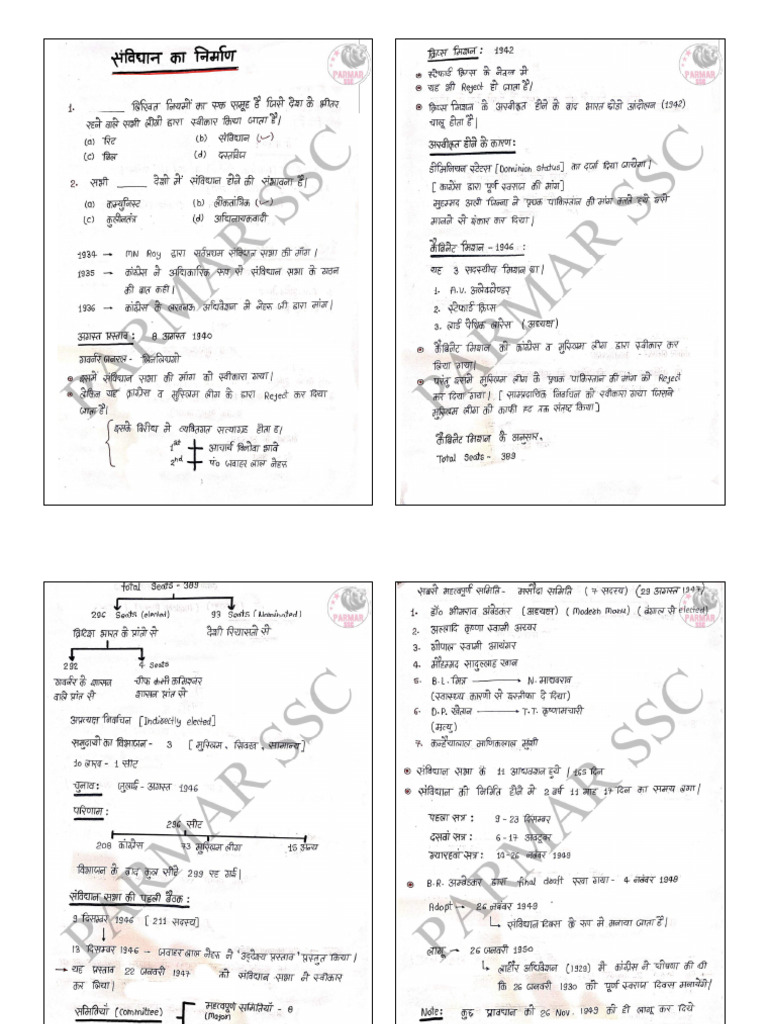 संविधान का निर्माण
PARMAR
SSC
1. ______ लिखित नियमों का एक समूह है जिसे देश के भीतर
रहने वाले सभी लोगों द्वारा स्वीकार किया जाता है।
(a) रिट (b) संविधान (✓)
(c) बिल (d) दस्तावेज
2. सभी ______ देशों में संविधान होने की संभावना है।
(a) कम्युनिस्ट (b) लोकतांत्रिक (✓)
(c) कुलीनतंत्र (d) अधिनायकवादी
1934 → MN Roy द्वारा सर्वप्रथम संविधान सभा की मांग।
1935 → कांग्रेस ने अधिकारिक रूप से संविधान सभा के गठन
की बात कही।
1936 → कांग्रेस के लखनऊ अधिवेशन में नेहरू जी द्वारा मांग।
अगस्त प्रस्ताव : 8 अगस्त 1940
गवर्नर जनरल - लिनलिथगो
इसमें संविधान सभा की मांग को स्वीकारा गया।
लेकिन यह कांग्रेस व मुस्लिम लीग के द्वारा Reject कर दिया
जाता है।
इसके विरोध में व्यक्तिगत सत्याग्रह होता है।
1st आचार्य विनोबा भावे
2nd पं० जवाहर लाल नेहरू
1
PARMAR SSC
क्रिप्स मिशन : 1942
PARMAR
SSC
स्टैफर्ड क्रिप्स के नेतृत्व में
यह भी Reject हो जाता है।
क्रिप्स मिशन के अस्वीकृत होने के बाद भारत छोड़ो आंदोलन (1942)
चालू होता है।
अस्वीकृत होने के कारण :
डोमिनियन स्टेट्स [Dominion status] का दर्जा दिया जायेगा।
[ कांग्रेस द्वारा पूर्ण स्वराज की मांग]
मुहम्मद अली जिन्ना ने पृथक पाकिस्तान की मांग करते हुये इसे
मानने से इंकार कर दिया।
कैबिनेट मिशन - 1946 :
यह 3 सदस्यीय मिशन था।
1. A.V. अलेक्जेण्डर
2. स्टैफर्ड क्रिप्स
3. लार्ड पैथिक लारेंस (अध्यक्ष)
कैबिनेट मिशन को कांग्रेस व मुस्लिम लीग द्वारा स्वीकार कर
लिया गया।
परंतु इसने मुस्लिम लीग के पृथक पाकिस्तान की मांग को Reject
कर दिया गया। [ साम्प्रदायिक निर्वाचन को स्वीकारा गया जिसने
मुस्लिम लीग को काफी हद तक संतुष्ट किया]
कैबिनेट मिशन के अनुसार,
Total Seats - 389
PARMAR SSC
Total Seats - 389
PARMAR
SSC
296 Seats (elected) 93 Seats (Nominated)
ब्रिटिश भारत के प्रांतों से देशी रियासतों से
292 4 Seats
गवर्नर के शासन चीफ कमिश्नर
वाले प्रांत से शासन प्रांत से
अप्रत्यक्ष निर्वाचन [Indirectly elected]
समुदायों का विभाजन - 3 [ मुस्लिम, सिक्ख, सामान्य]
10 लाख - 1 सीट
चुनाव : जुलाई - अगस्त 1946
परिणाम :
296 सीट
208 कांग्रेस 73 मुस्लिम लीग 15 अन्य
विभाजन के बाद कुल सीटें 299 रह गई।
संविधान सभा की पहली बैठक :
9 दिसम्बर 1946 [ 211 सदस्य]
13 दिसम्बर 1946 - जवाहर लाल नेहरू ने 'उद्देश्य प्रस्ताव' प्रस्तुत किया।
→ यह प्रस्ताव 22 जनवरी 1947 को संविधान सभा ने स्वीकार
कर लिया।
समितियाँ (committee) महत्वपूर्ण समितियाँ - 8
(Major)
PARMAR SSC
सबसे महत्वपूर्ण समिति - मसौदा समिति (7 सदस्य) (29 अगस्त 1947)
PARMAR
SSC
1. डॉ० भीमराव अंबेडकर (अध्यक्ष) (Modern Manu) (बंगाल से elected)
2. अल्लादि कृष्णा स्वामी अय्यर
3. गोपाल स्वामी आयंगर
4. मोहम्मद सादुल्लाह खान
5. B.L. मित्र → N. माधवराव
(स्वास्थ्य कारणों से इस्तीफा दे दिया)
6. D.P. खेतान → T.T. कृष्णामचारी
(मृत्यु)
7. कन्हैयालाल माणिकलाल मुंशी
संविधान सभा के 11 अधिवेशन हुये। 165 दिन
संविधान को निर्मित होने में 2 वर्ष 11 माह 17 दिन का समय लगा।
पहला सत्र : 9 - 23 दिसम्बर
दसवां सत्र : 6 - 17 अक्टूबर
ग्यारहवां सत्र : 14-26 नवंबर 1949
B.R. अम्बेडकर द्वारा final draft रखा गया - 4 नवंबर 1948
Adopt → 26 नवंबर 1949
संविधान दिवस के रूप में मनाया जाता है।
लागू → 26 जनवरी 1950
लाहौर अधिवेशन (1929) में कांग्रेस ने घोषणा की थी
कि 26 जनवरी 1930 को पूर्ण स्वराज दिवस मनायेंगे।
Note: कुछ प्रावधान को 26 Nov. 1949 को ही लागू कर दिये
PARMAR SSC